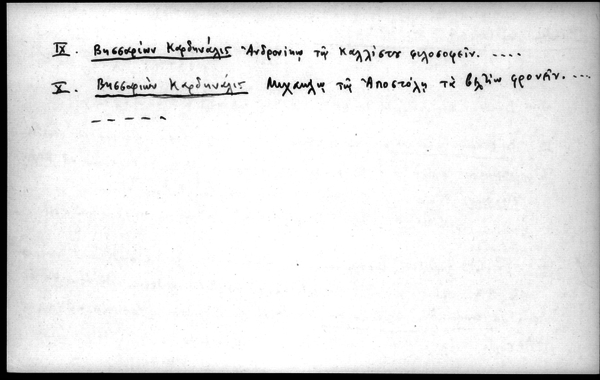 IX. Βησσαρίων Καρδηνάλις Ἀνδρονίκῳ τῷ Καλλίστου φιλοσοφεῖν. ....
X. Βησσαρίων Καρδηνάλις Μιχαήλῳ τῷ Ἀποστόλῃ τὰ βελτίω φρονεῖν. ....
_ _ _ _ _